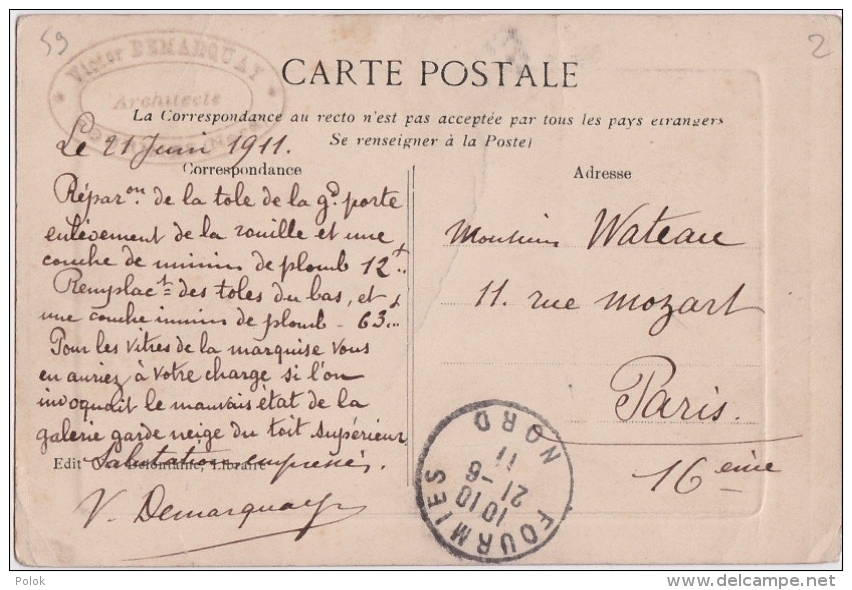 59
2
Victor DEMARQUAY
Architecte
CARTE POSTALE
La Correspondance au recto n'est pas acceptée par tous les pays etrangers
Se renseigner à la Poste)
Le 21 Juin 1911.
Correspondance
Adresse
Réparon. de la tole de la gd. porte
enlèvement de la rouille et une
couche de minim de plomb 12 f..
Remplact = des toles du bas, et
une couche minim de plomb - 63 f..
Pour les vitres de la marquise vous
en auriez à votre charge si l'on
invoquait le mauvais état de la
galerie garde neige du toit supérieur
Edit Delomanie, Libraire
Salutations empressées.
V. Demarquay
Monsieur Wateau
11. rue mozart
Paris.
16 eme
FOURMIES
NORD
10 10
21 - 6
11
Polok
delcampe.net